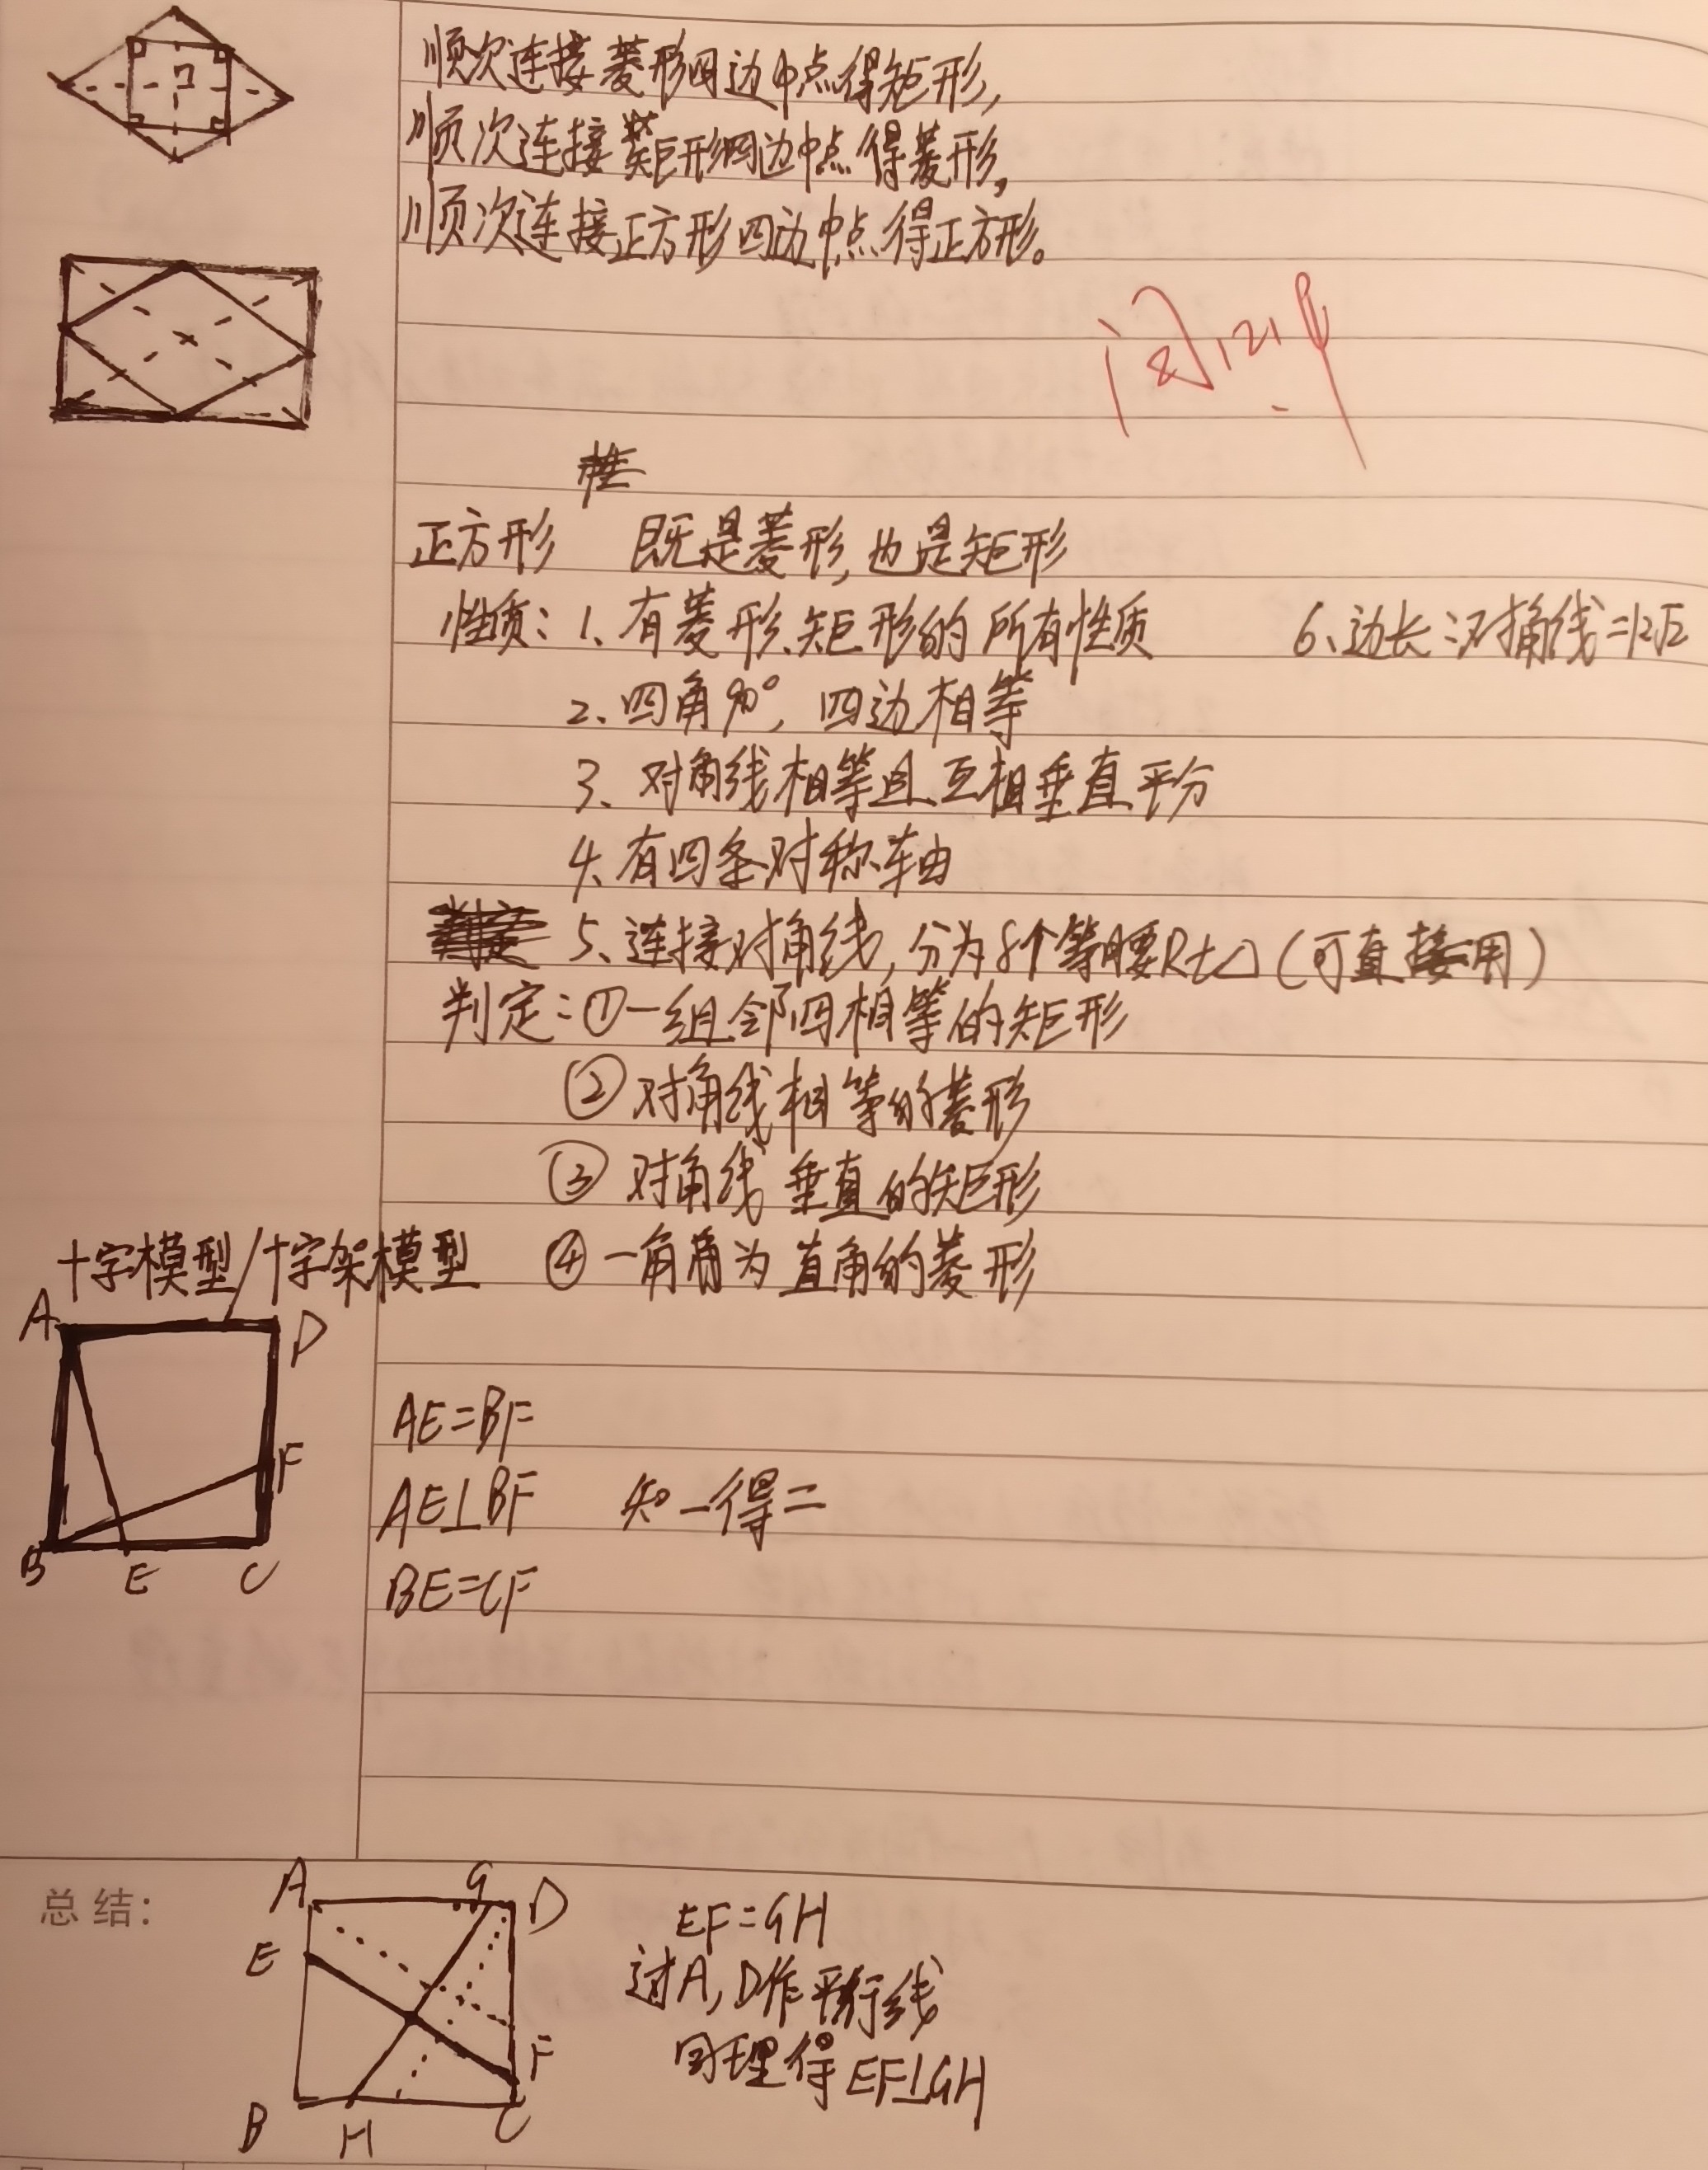 顺次连接菱形四边中点得矩形，
顺次连接矩形四边中点得菱形，
顺次连接正方形四边中点得正方形。
正方形 既是菱形，也是矩形
性质：1、有菱形、矩形的所有性质 6、边长：对角线=1:√2
2、四角90°，四边相等
3、对角线相等且互相垂直平分
4、有四条对称轴
5、连接对角线，分为8个等腰Rt△（可直接用）
判定：①一组邻四相等的矩形
②对角线相等的菱形
③对角线垂直的矩形
十字模型/十字架模型 ④一角角为直角的菱形
A D
F
B E C
AE=BF
AE⊥BF 知一得二
BE=CF
总结：
A G D
E
F
B H C
EF=GH
过A，D作平行线
同理得EF⊥GH